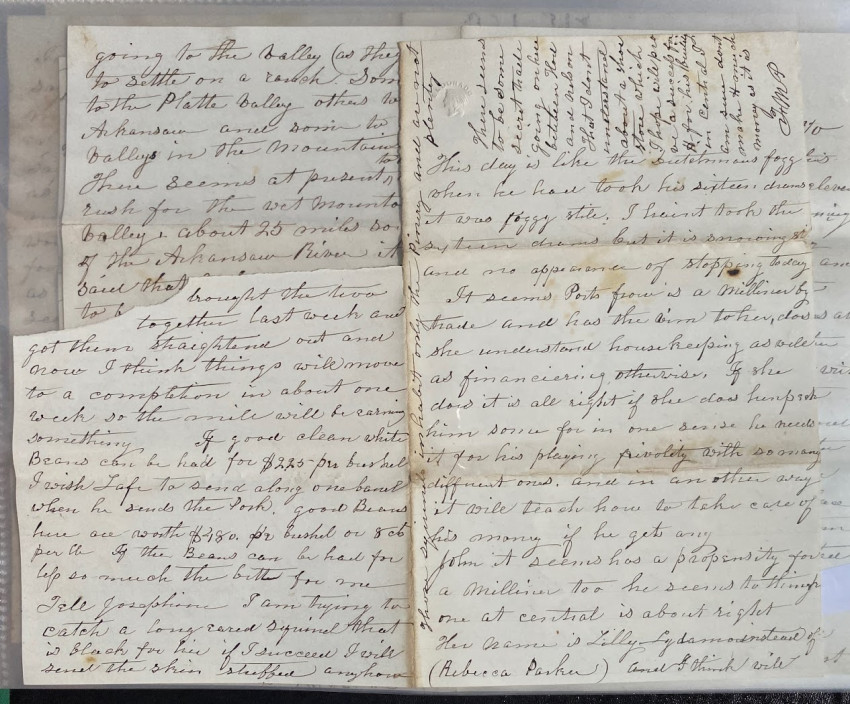 going to the valley (as they
to settle on a ranch. Som
to the Platte Valley others to
Arkansaw and some to
Valleys in the Mountain
to
There seems at present
rush for the wet Mounta
Valley. about 25 miles so
of the Arkansaw River it
said that
to
brought the two
together last week and
got them straightend out and
now I think things will move
to a completion in about one
week so the mill will be earning
something If good clean white
Beans can be had for $2.25 per bushel
I wish Lafe to send along one barrel
when he sends the Pork. good Beans
here are worth $4.80. pr bushel or 8 cts
per lb If the Beans can be had for
less so much the better for me
Tell Josephine I am trying to
catch a long eared squirrel that
is black for her if I succeed I will
send the skin stuffed anyhow
There seems
to be some
secret trade
going on here
between Thed
and Nelson
That I dont
understand
about a shoe
store which
I hope will pro
ve a success for
for his
in Central I
am sure dont
make to much
money as it is
JMP
plenty
the Penny and are not
This day is like the Dutchmans fogg
when he had took his sixteen drams
it was foggy stile. I haint took the
sixteen drams but it is snowing sti
and no appearance of stopping today
It seems Ports frow is a Milliner by
trade and has the vim to her, does
she understand housekeeping as well
as financiering otherwise. If she
does it is all right if she does henpeck
him some for in one sense he needs
it for his playing frivolity with so many
different ones. and in an other way
it will teach how to take care of
his money if he gets any
John it seems has a propensity for
a Milliner too he seems to think
one at central is about right
Her name is Lilly Lydamo instead of
(Rebecca Parker) and I think will